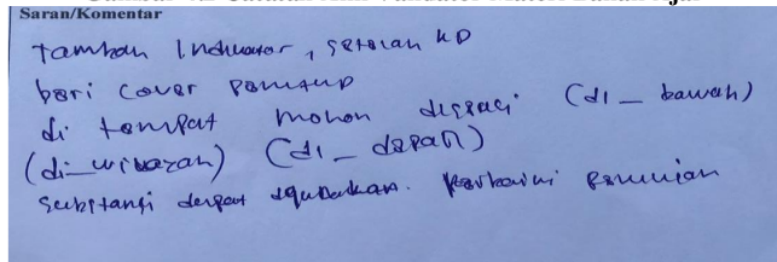 Saran/Komentar
Tambah Indikator, setelah KD
beri cover penutup
di tempat mohon dispasi (di _ bawah)
(di_wilayah) (di _ depan)
Substansi dapat digunakan. Perbaiki penulisan